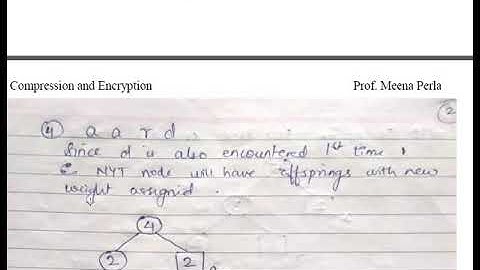 Compression and Encryption Prof. Meena Perla
2
4 a a r d
Since d is also encountered 1st time,
NYT node will have offsprings with new
weight assigned.
4
2 2